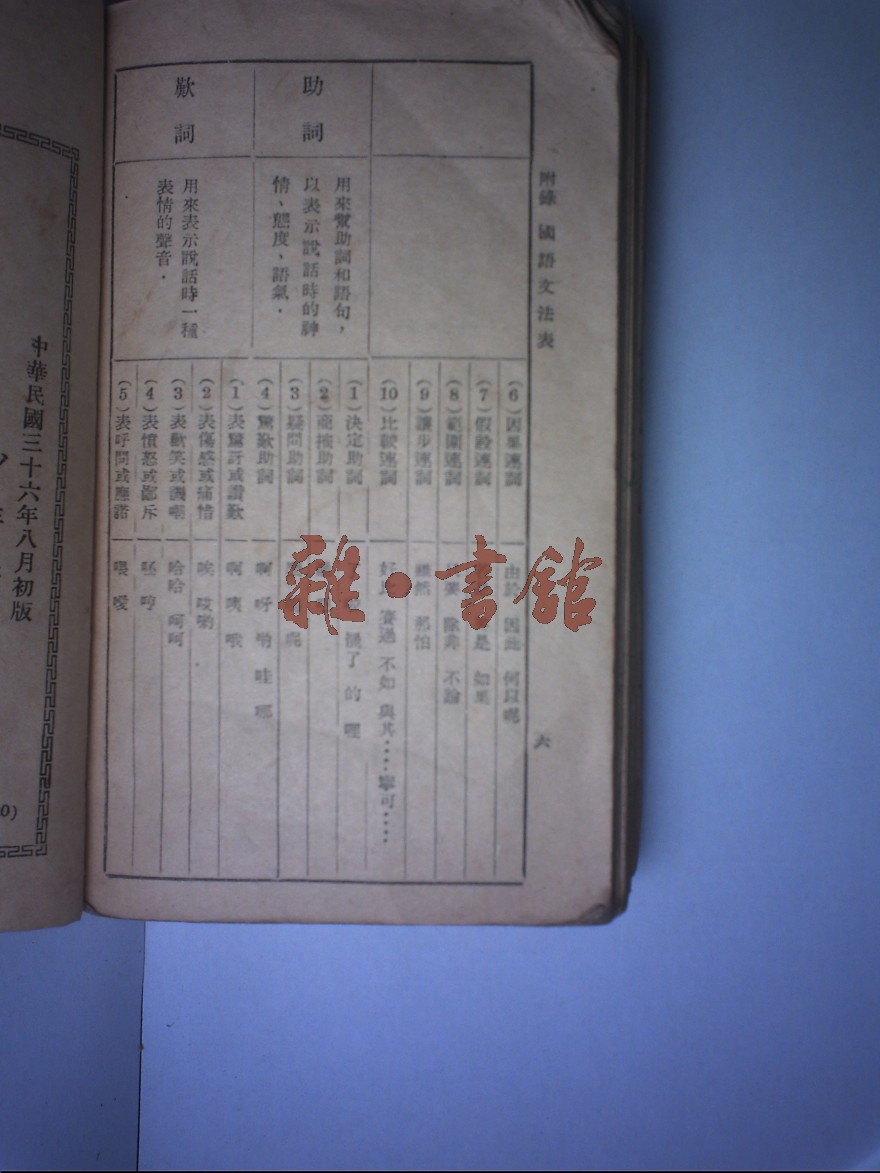 附錄 國語文法表
六
(6)因果連詞 由於 因此 何以呢
(7)假設連詞 是 如果
(8)範圍連詞 除非 不論
(9)讓步連詞 雖然 那怕
(10)比較連詞 好 賽過 不如 與其……寧可……
助詞
用來幫助詞和語句，
以表示說話時的神
情、態度、語氣．
(1)決定助詞 了 的 哩
(2)商榷助詞
(3)疑問助詞 呢
(4)驚歎助詞 啊 呀 喲 哇 哪
歎詞
用來表示說話時一種
表情的聲音．
(1)表驚訝或讚歎 啊 咦 哦
(2)表傷感或痛惜 唉 哎喲
(3)表歡笑或譏嘲 哈哈 呵呵
(4)表憤怒或鄙斥 呸 哼
(5)表呼問或應諾 喂 噯
雜·書館
中華民國三十六年八月初版
0)